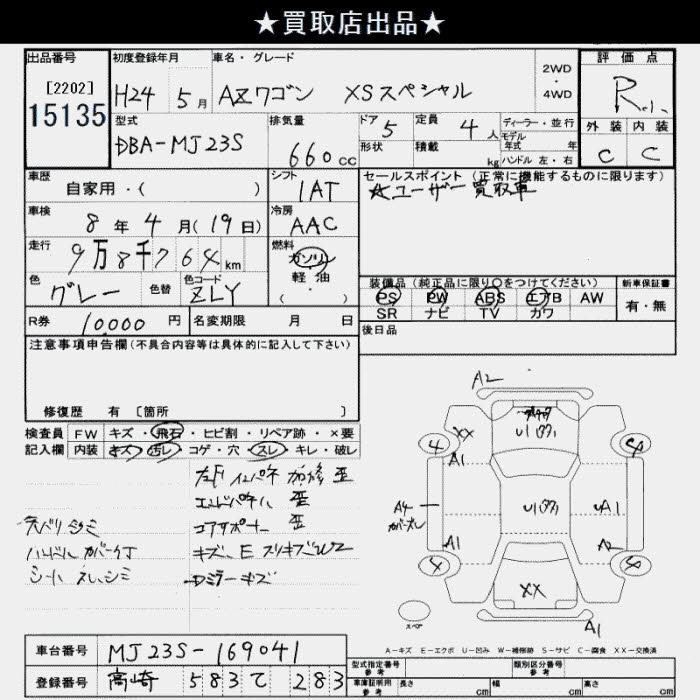 ★買取店出品★
出品番号 初度登録年月 車名・グレード 2WD・4WD 評価点
[2202]
15135 H24 5月 AZワゴン XSスペシャル R
型式 排気量 ドア 5 定員 4人 ディーラー・並行
モデル年式 年
外装 内装
DBA-MJ23S 660cc 形状 積載 kg ハンドル 左・右 C C
車歴 自家用・( ) シフト IAT セールスポイント (正常に機能するものに限ります)
★ユーザー買取車
車検 8年4月(19日) 冷房 AAC
走行 9万8千764km 燃料 ガソリン 軽・油 ・( )
色 グレー 色替 色コード ZLY
装備品(純正品に限り○をつけてください) 新車保証書
PS PW ABS エアB AW 有・無
SR ナビ TV カワ
R券 10,000円 名変期限 月 日 後日品
注意事項申告欄(不具合内容等は具体的に記入して下さい)
修復歴 有 [箇所 ]
検査員 FW キズ・飛石・ヒビ割・リペア跡・×要
記入欄 内装 キズ・汚レ・コゲ・穴・スレ・キレ・破レ
A2
XX
A1
A4
A1
A1
A2
XX
A1
スペア
左F インパネ 加修 歪
エンドパネル 歪
コアサポート 歪
キズ、E スリキズ W2
ミラーキズ
シート スレ、シミ
A-キズ E-エクボ U-凹み W-補修跡 S-サビ C-腐食 XX-交換済
車台番号 MJ23S-169041
登録番号 高崎 583て 283
型式指定番号 参考 類別区分番号 参考
車庫証明用 参考 長さ cm 幅 cm 高さ cm